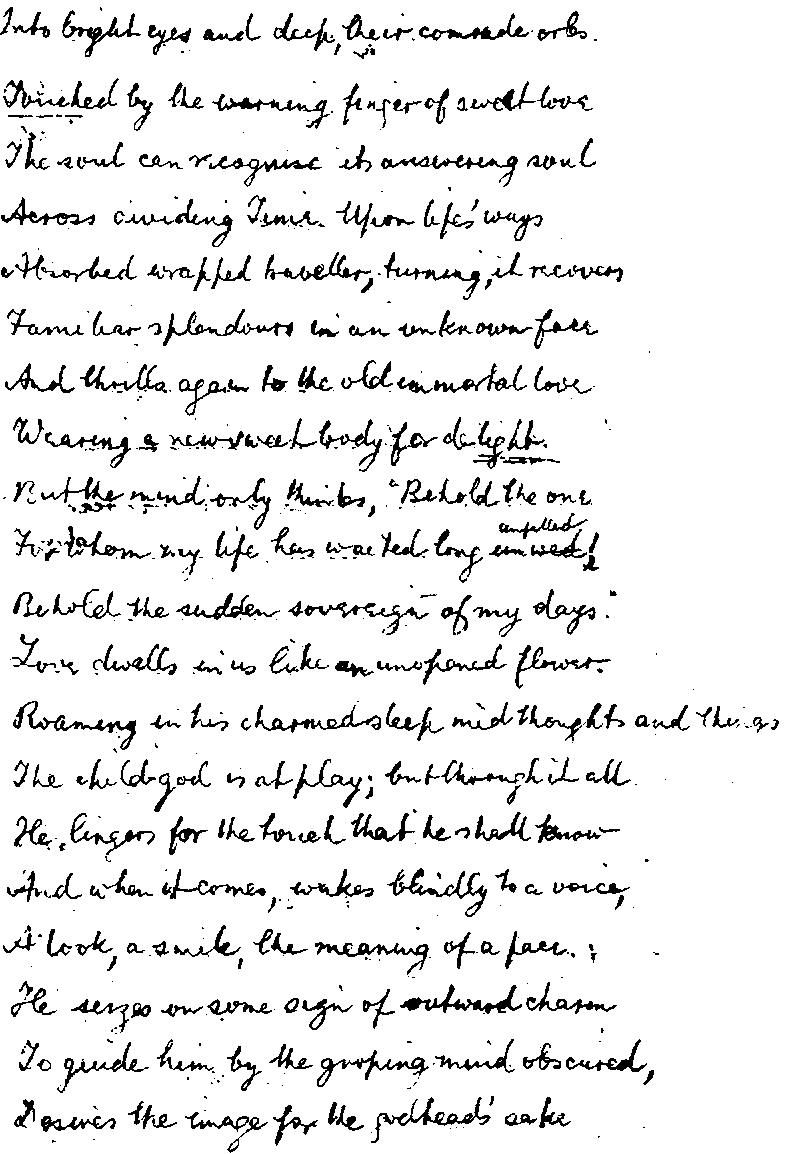 Into bright eyes and deep, their comrade orbs.
Touched by the warning finger of sweet love
The soul can recognise its answering soul
Across dividing Time. Upon life's ways
Absorbed wrapped traveller, turning, it recovers
Familiar splendours in an unknown face
And thrills again to the old immortal love
Wearing a new sweet body for delight.
But the mind only thinks, "Behold the one
For whom my life has waited long unfilled!
Behold the sudden sovereign of my days."
Love dwells in us like an unopened flower.
Roaming in his charmed sleep mid thoughts and things
The child-god is at play; but through it all
He lingers for the touch that he shall know
And when it comes, wakes blindly to a voice,
A look, a smile, the meaning of a face.
He seizes on some sign of outward charm
To guide him by the groping mind obscured,
Desires the image for the godhead's sake